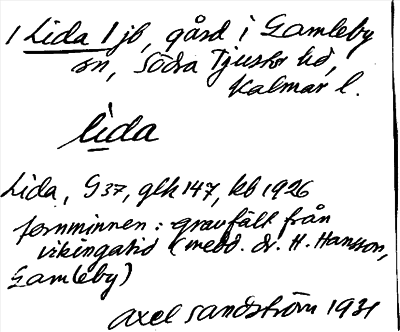 1 Lida 1 jb, gård i Gamleby
sn, Södra Tjusts hd,
Kalmar l.
lida
Lida, G 37, glk 147, kb 1926
fornminnen: gravfält från
vikingatid (medd. dr. H. Hansson,
Gamleby)
Axel Sandström 1931